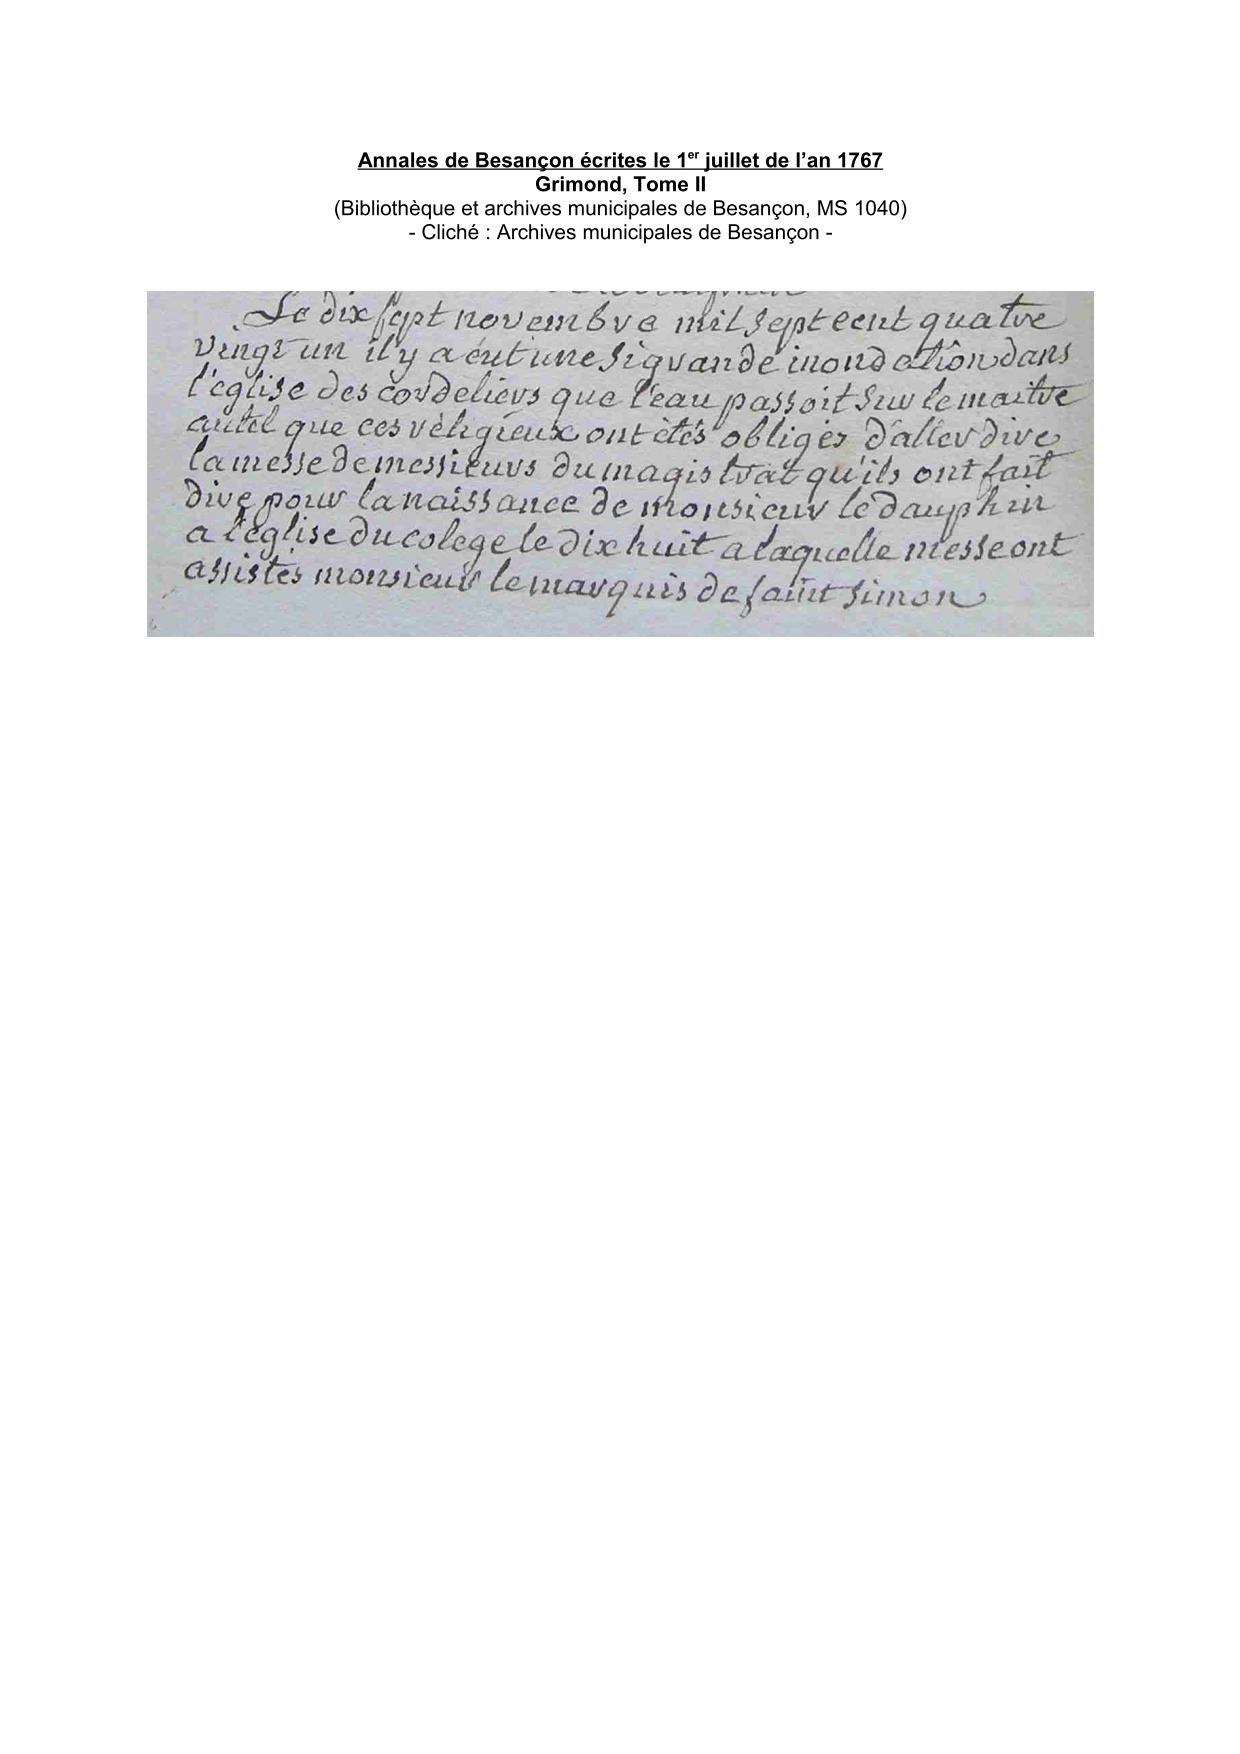 Annales de Besançon écrites le 1er juillet de l'an 1767
Grimond, Tome II
(Bibliothèque et archives municipales de Besançon, MS 1040)
- Cliché : Archives municipales de Besançon -
Le dix sept novembre mil sept cent quatre
vingt un il y a éut une si grande inondation dans
l'église des cordeliers que l'eau passoit sur le maitre
autel que ces réligieux ont étés obligés d'aller dire
la messe de messieurs du magistrat qu'ils ont fait
dire pour la naissance de monsieur le dauphin
a l'église du colege le dix huit a laquelle messe ont
assistés monsieur le marquis de saint simon